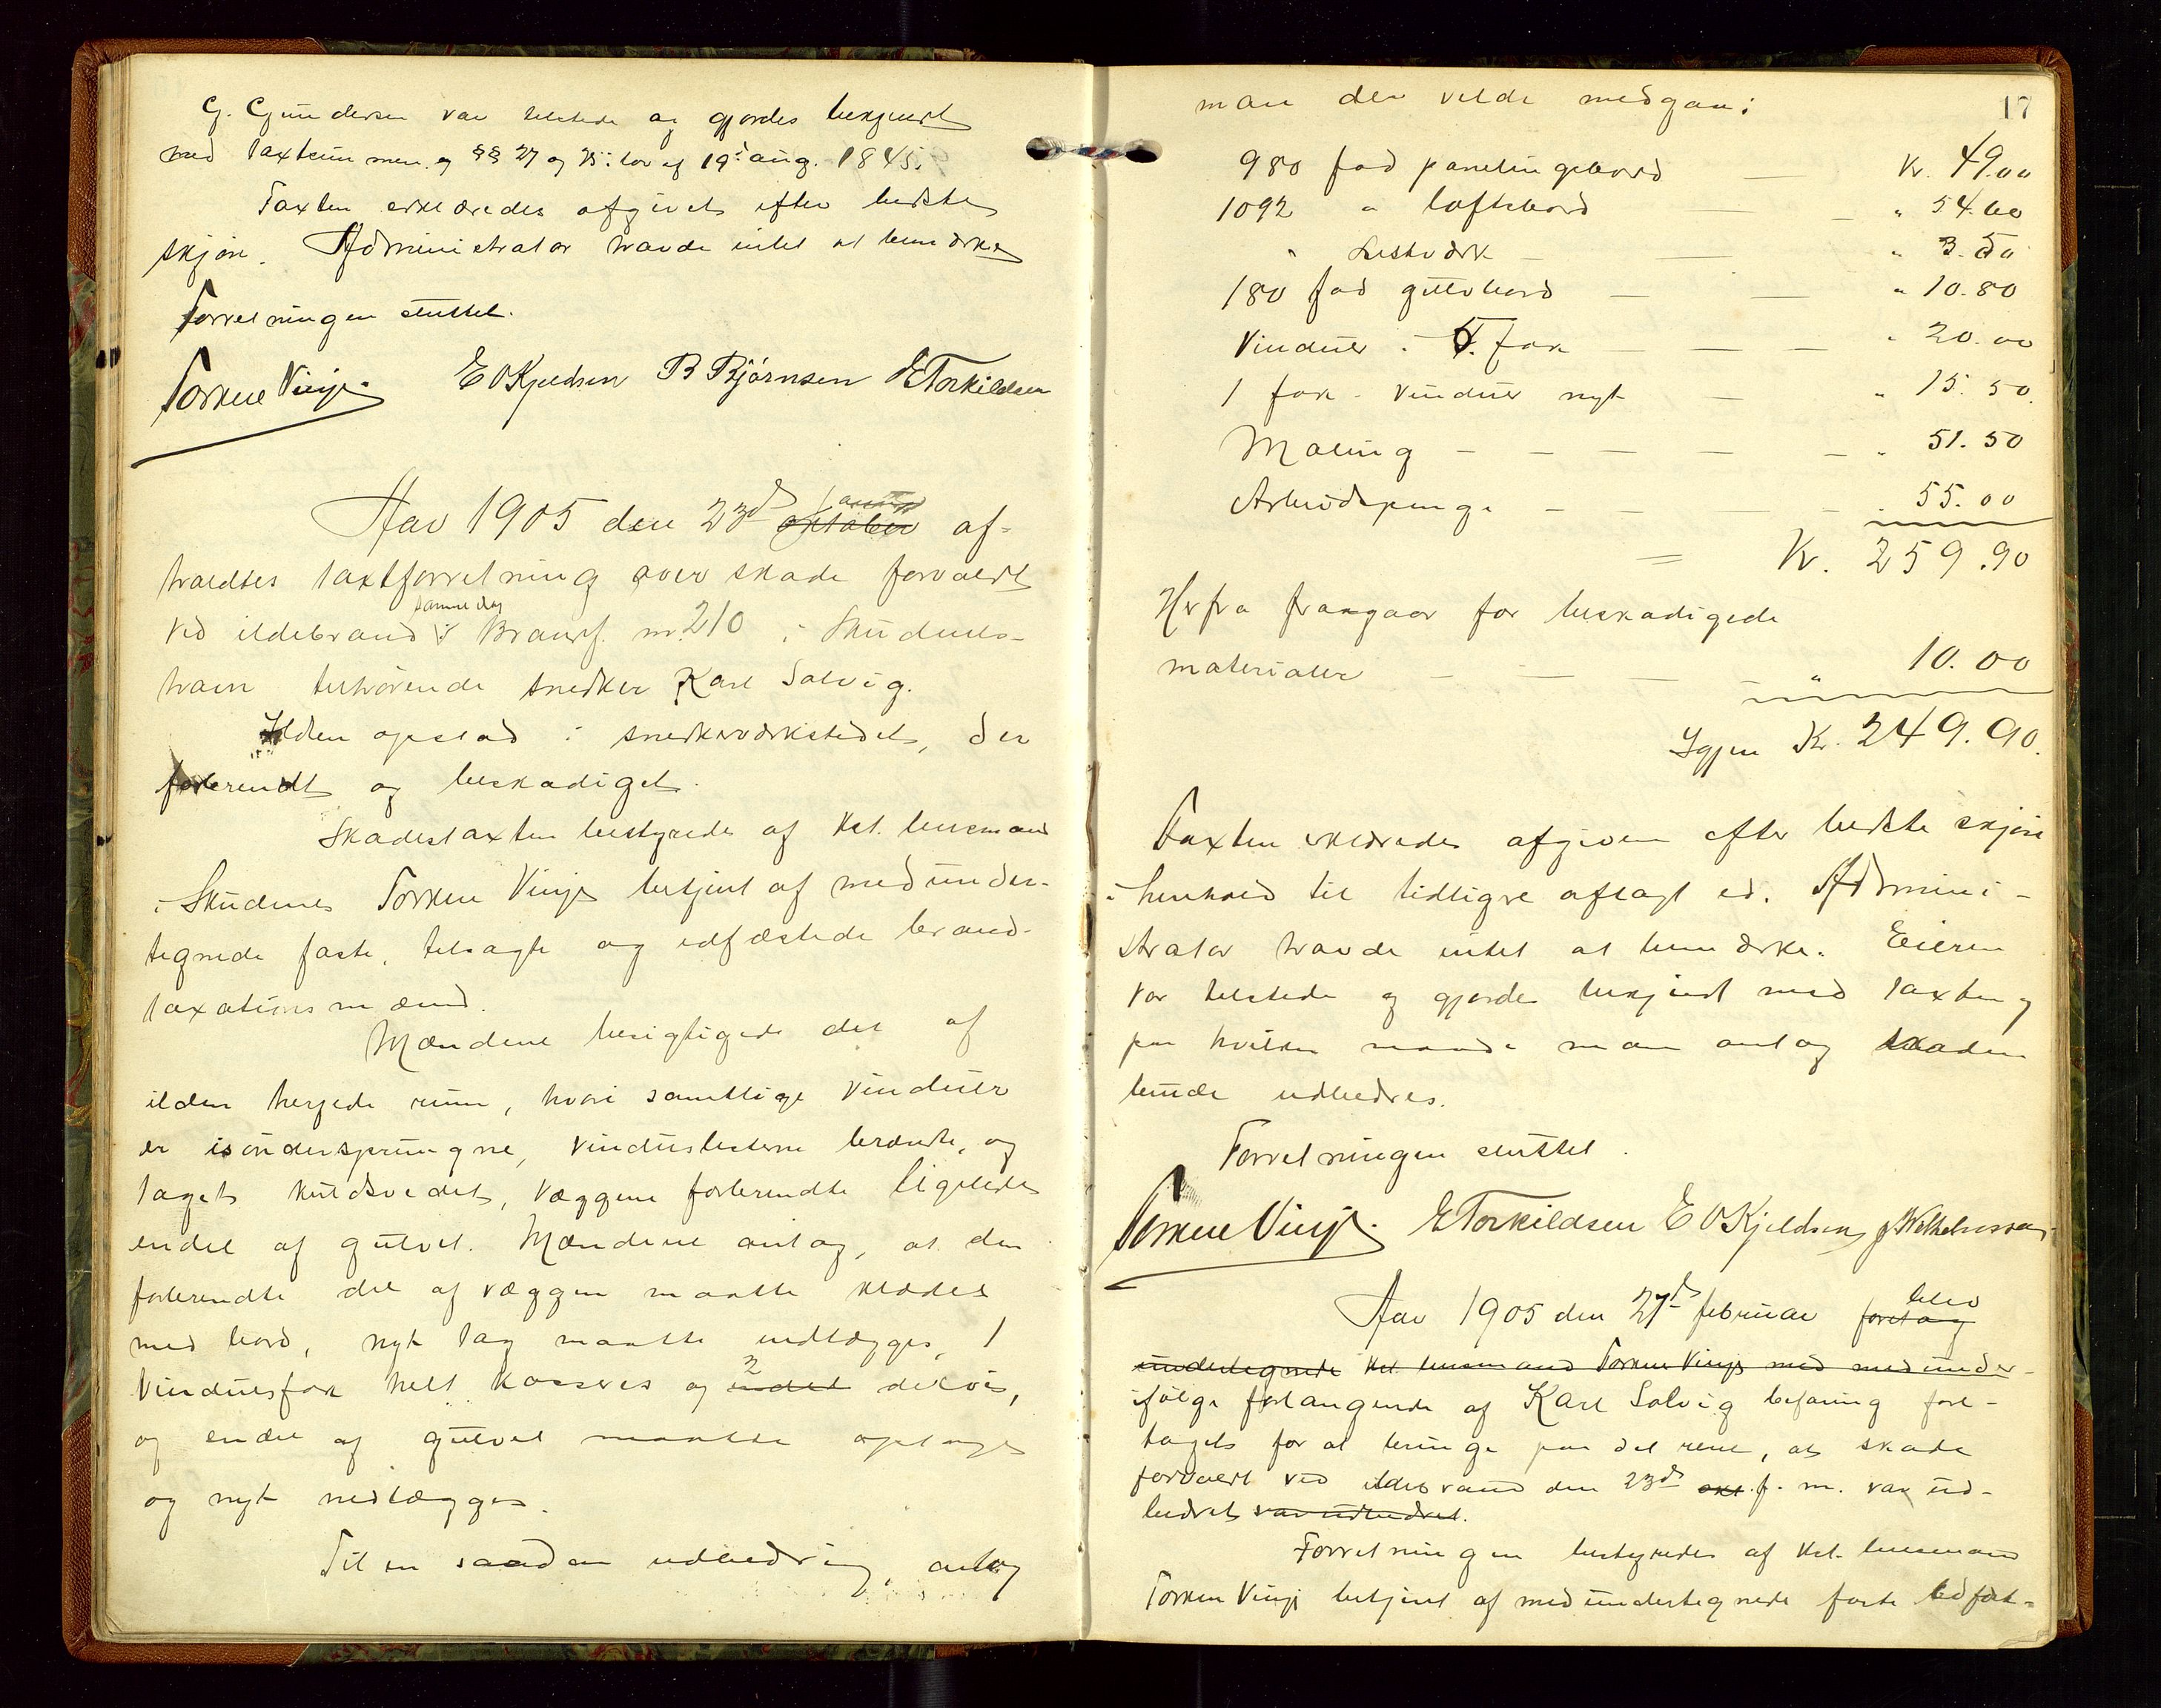 G. Gundersen var tilstede og gjordes bekjendt
med taxtsummen og §§ 27 og 25 i lov af 19de aug. 1845.
Taxten erklæredes afgivet efter bedste
skjøn. Administrator havde intet at bemærke
Forretningen sluttet.
Torkel Vinje E O Kjeldsen B Bjørnsen E Torkildsen
Aar 1905 den 23de oktober januar af-
holdtes taxtforretning over skade forvoldt
samme dag
ved ildebrand i Brandf. nr. 210 i Skudenes-
havn tilhørende snedker Karl Solvig.
Ilden opstod i snedkerværkstedet, der
forbrendt og beskadiget.
Skadestaxten bestyredes af kst. lensmand
i Skudenes Torkel Vinje betjent af medunder-
tegnede faste, tilsagte og edfæstede brand-
taxationsmænd.
Mændene besigtigede det af
ilden herjede rum, hvori samtlige vinduer
er isøndersprungne, vinduslisterne brændte, og
taget kuldsvedet, væggene forbrendte ligeledes
endel af gulvet. Mændene antog, at den
forbrendte del af væggen maatte klædes
med bord, nyt tag maatte indlægges, 1
2
Vinduesfar helt kasseres og endel delvis,
og endel af gulvet maatte optages
og nyt nedlægges.
Til en saadan udbedring, antog
17
man der vilde medgaa:
980 fod panelingsbord — Kr. 49.00
1092 " loftsbord — — " 54.60
" Listværk — — " 3.50
180 fod gulvbord — — " 10.80
Vinduer i 5. far — — — " 20.00
1 far vinduer nyt — " 15.50.
Maling — — — — — — " 51.50
Arbeidspenge — — — — 55.00
= Kr. 259.90
Herfra fragaar for beskadigede
materialer — — — — " 10.00
Igjen Kr. 249.90.
Taxten erklæredes afgiven efter bedste skjøn
i henhold til tidligere aflagt ed. Admini-
strator havde intet at bemærke. Eieren
var tilstede og gjordes bekjendt med taxten og
paa hvilken maade man antog skaden
burde udbedres.
Forretningen sluttet.
Torkel Vinje. E Torkildsen E O Kjeldsen J Wilhelmsen
Aar 1905 den 27de februar foretog blev
undertegnede kst. lensmand Torkel Vinje med medunder-
ifølge forlangende af Karl Solvig befaring fore-
taget for at bringe paa det rene, at skade
forvoldt ved ildebrand den 23de okt. f. m. var ud-
bedret var udbedret.
Forretningen bestyredes af kst. lensmand
Torkel Vinje betjent af medundertegnede faste edfæst-